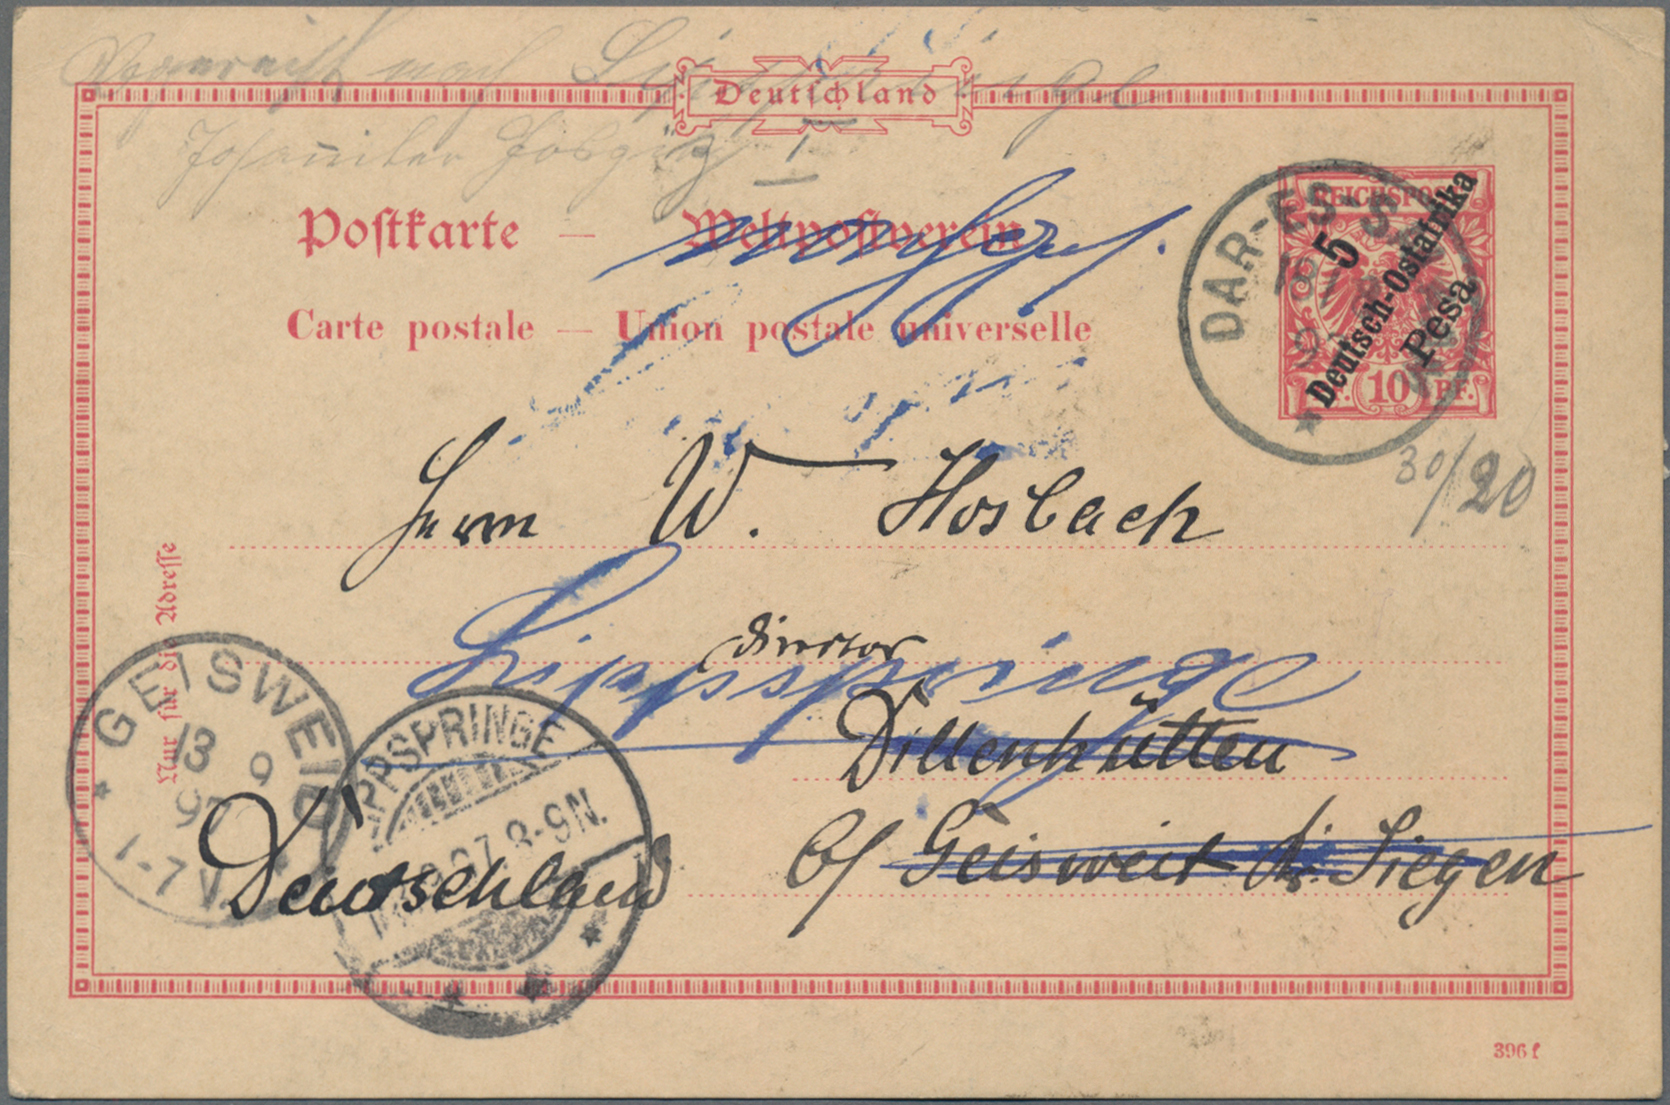 nach Lippspringe
Johanniter Hospiz
Deutschland
Postkarte — Weltpostverein
Carte postale — Union postale universelle
REICHSPO
5
Deutsch-Ostafrika
Pesa
10 PF.
DAR-ES-S
30/20
Herrn W. Hosbach
director
Lippspringe
Dillenhütten
b/ Geisweit b. Siegen
Deutschland
Nur für die Adresse
GEISWEID
13 9
97
1-7 V.
LIPPSPRINGE
97. 8-9N.
396 f